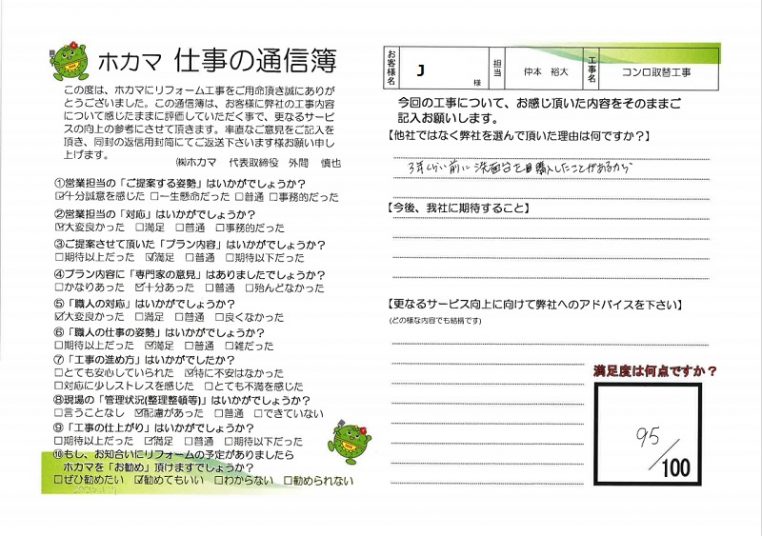 ホカマ 仕事の通信簿
この度は、ホカマにリフォーム工事をご用命頂き誠にありが
とうございました。この通信簿は、お客様に弊社の工事内容
について感じたままに評価していただく事で、更なるサービ
スの向上の参考にさせて頂きます。率直なご意見をご記入を
頂き、同封の返信用封筒にてご返送下さいます様お願い申し
上げます。
㈱ホカマ 代表取締役 外間 慎也
①営業担当の「ご提案する姿勢」はいかがでしょうか？
☑十分誠意を感じた □一生懸命だった □普通 □事務的だった
②営業担当の「対応」はいかがでしょうか？
☑大変良かった □満足 □普通 □事務的だった
③ご提案させて頂いた「プラン内容」はいかがでしょうか？
□期待以上だった ☑満足 □普通 □期待以下だった
④プラン内容に「専門家の意見」はありましたでしょうか？
□かなりあった ☑十分あった □普通 □殆んどなかった
⑤「職人の対応」はいかがでしょうか？
☑大変良かった □満足 □普通 □良くなかった
⑥「職人の仕事の姿勢」はいかがでしょうか？
□期待以上 ☑満足 □普通 □雑だった
⑦「工事の進め方」はいかがでしたか？
□とても安心していられた ☑特に不安はなかった
□対応に少しストレスを感じた □とても不満を感じた
⑧現場の「管理状況(整理整頓等)」はいかがでしょうか？
□言うことなし ☑配慮があった □普通 □できていない
⑨「工事の仕上がり」はいかがでしょうか？
□期待以上だった ☑満足 □普通 □期待以下だった
⑩もし、お知合いにリフォームの予定がありましたら
ホカマを「お勧め」頂けますでしょうか？
□ぜひ勧めたい ☑勧めてもいい □わからない □勧められない
お客様名 J 様 担当 仲本 裕大 工事名 コンロ取替工事
今回の工事について、お感じ頂いた内容をそのままご
記入お願いします。
【他社ではなく弊社を選んで頂いた理由は何ですか？】
3年くらい前に洗面台を購入したことがあるから
【今後、我社に期待すること】
【更なるサービス向上に向けて弊社へのアドバイスを下さい】
(どの様な内容でも結構です)
満足度は何点ですか？
95
/100